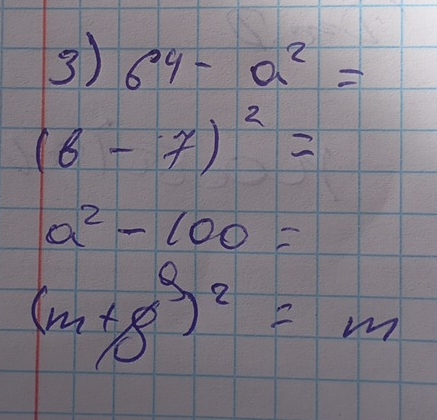 3) 64 - a² =
(b - 7)² =
a² - 100 =
(m + 9)² = m